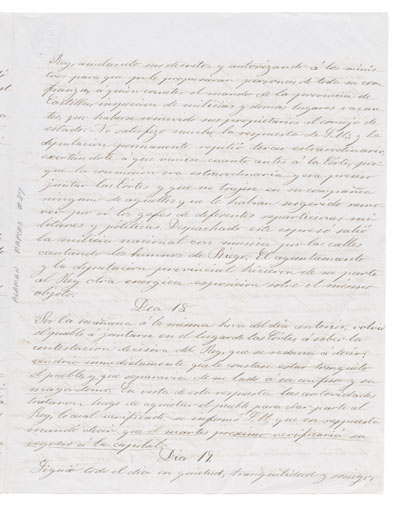 Rey, anulando sus decretos y autorizando á los minis-
tros para que pr le propusieran personas de toda su con-
fianza, á quien cometer el mando de la provincia de
Castilla, inspeccion de milicias y demas lugares vacan-
tes por haber removido sus propietarios al consejo de
estado. No satisfizo mucho la respuesta de S.M. y la
diputacion permanente repitió tercer estraordinario,
escitandole a que viniese cuanto antes á la Corte, por-
que la conmocion era estraordinaria, y era preciso
juntar las Cortes y que no trajese en su compañia
ninguno de aquellos que le habian sugerido remo-
ver por si los gefes de diferentes reparticiones mi-
litares y politicas. Despachado este espreso salió
la milicia nacional con musica por las calles
cantando los himnos de Riego. El ayuntamiento
y la diputacion provincial hicieron de su parte
al Rey otra energica esposicion sobre el mismo
objeto.
Dia 18.
Por la mañana á la misma hora del dia anterior, volvió
el pueblo á juntarse en el lugar de las Cortes á saber la
contestacion decisiva del Rey, que se reducia á decir
vendria inmediatamente que le constase estar tranquilo
el pueblo, y que separaria de su lado a su confesor y su
mayordomo. En vista de esta respuesta las autoridades
trataron luego de aquietar el pueblo para dar parte al
Rey, lo cual verificado, se informó S.M. que en respuesta
mandó decir que el martes proximo verificaria su
regreso á la capital.
Dia 19
Siguió todo el dia en quietud, tranquilidad y sosiego
PURMAN PAPERS #27